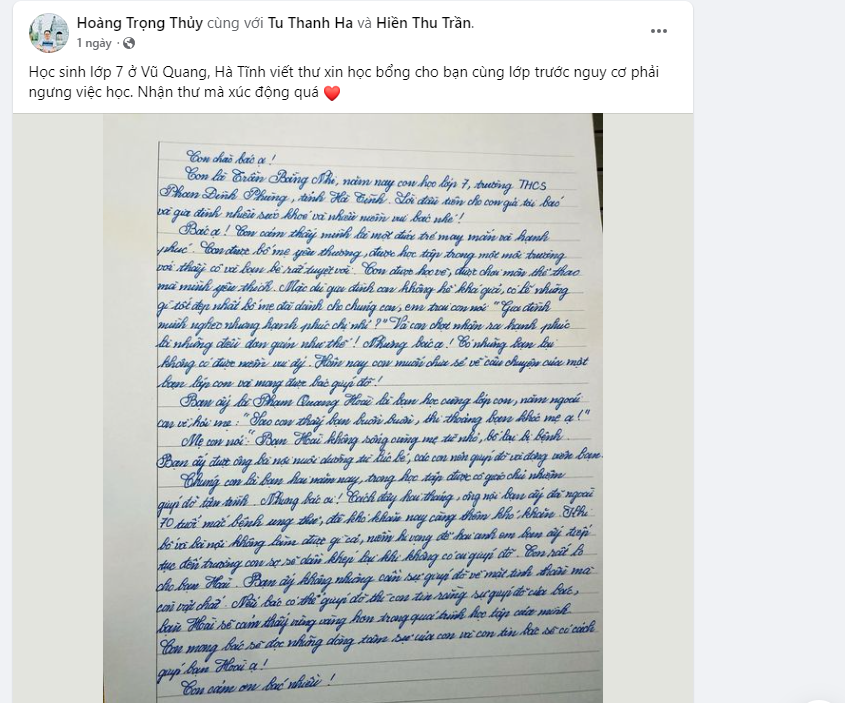 Hoàng Trọng Thủy cùng với Tu Thanh Ha và Hiền Thu Trần.
1 ngày ·
Học sinh lớp 7 ở Vũ Quang, Hà Tĩnh viết thư xin học bổng cho bạn cùng lớp trước nguy cơ phải
ngưng việc học. Nhận thư mà xúc động quá ❤️
Con chào bác ạ!
Con là Trần Băng Nhi, năm nay con học lớp 7, trường THCS
Phan Đình Phùng, tỉnh Hà Tĩnh. Lời đầu tiên cho con gửi tới bác
và gia đình nhiều sức khoẻ và nhiều niềm vui bác nhé!
Bác ạ! Con cảm thấy mình là một đứa trẻ may mắn và hạnh
phúc. Con được bố mẹ yêu thương, được học tập trong một môi trường
với thầy cô và bạn bè rất tuyệt vời. Con được học vẽ, được chơi môn thể thao
mà mình yêu thích. Mặc dù gia đình con không hề khá giả, có lẽ những
gì tốt đẹp nhất bố mẹ đã dành cho chúng con, em trai con nói "Gia đình
mình nghèo nhưng hạnh phúc chị nhỉ?" Và con chợt nhận ra hạnh phúc
là những điều đơn giản như thế! Nhưng bác ạ! Có những bạn lại
không có được niềm vui ấy. Hôm nay con muốn chia sẻ về câu chuyện của một
bạn lớp con và mong được bác giúp đỡ!
Bạn ấy là Phạm Quang Hoài là bạn học cùng lớp con, năm ngoái
con về hỏi mẹ: "Sao con thấy bạn buồn buồn, thi thoảng bạn khóc mẹ ạ!"
Mẹ con nói: "Bạn Hoài không sống cùng mẹ từ nhỏ, bố lại bị bệnh.
Bạn ấy được ông bà nội nuôi dưỡng từ lúc bé, các con nên giúp đỡ và động viên bạn.
Chúng con là bạn hai năm nay, trong học tập được cô giáo chủ nhiệm
giúp đỡ tận tình. Nhưng bác ơi! Cách đây hai tháng, ông nội bạn ấy đã ngoài
70 tuổi mắc bệnh ung thư, đã khó khăn nay càng thêm khó khăn. Khi
bố và bà nội không làm được gì cả, niềm hi vọng để hai anh em bạn ấy tiếp
tục đến trường con sợ sẽ dần khép lại khi không có ai giúp đỡ. Con rất lo
cho bạn Hoài. Bạn ấy không những cần sự giúp đỡ về mặt tinh thần mà
cả vật chất. Nếu bác có thể giúp đỡ thì con tin rằng sự giúp đỡ của bác,
bạn Hoài sẽ cảm thấy vững vàng hơn trong quá trình học tập của mình.
Con mong bác sẽ đọc những dòng tâm sự của con và con tin bác sẽ có cách
giúp bạn Hoài ạ!
Con cảm ơn bác nhiều!